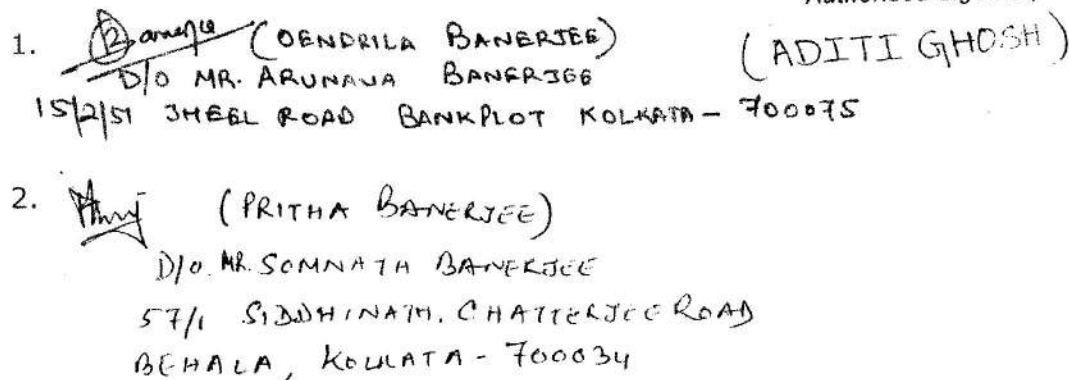 1. Banerjee (OENDRILA BANERJEE)
(ADITI GHOSH)
D/O MR. ARUNAVA BANERJEE
15/2/51 JHEEL ROAD BANKPLOT KOLKATA - 700075
2. (PRITHA BANERJEE)
D/O. MR. SOMNATH BANERJEE
57/1 SIDDHINATH. CHATTERJEE ROAD
BEHALA, KOLKATA - 700034